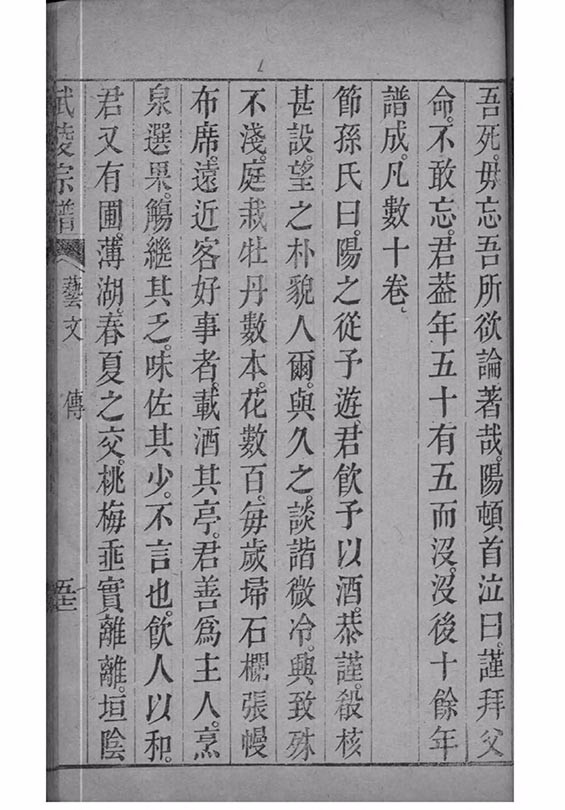 吾死。毋忘吾所欲論著哉。陽頓首泣曰。謹拜父
命。不敢忘。君葢年五十有五而沒。沒後十餘年
譜成。凡數十卷。
節孫氏曰。陽之從予遊。君飮予以酒。恭謹。殽核
甚設。望之朴貌人爾。與久之。談諧微冷。興致殊
不淺。庭栽牡丹數本。花數百。每歲埽石欄張幔
布席。遠近客好事者。載酒其亭。君善爲主人。烹
泉選果。觴繼其乏。味佐其少。不言也。飮人以和。
君又有圃。薄湖。春夏之交。桃梅垂實離離。垣陰
武陵宗譜 藝文 傳